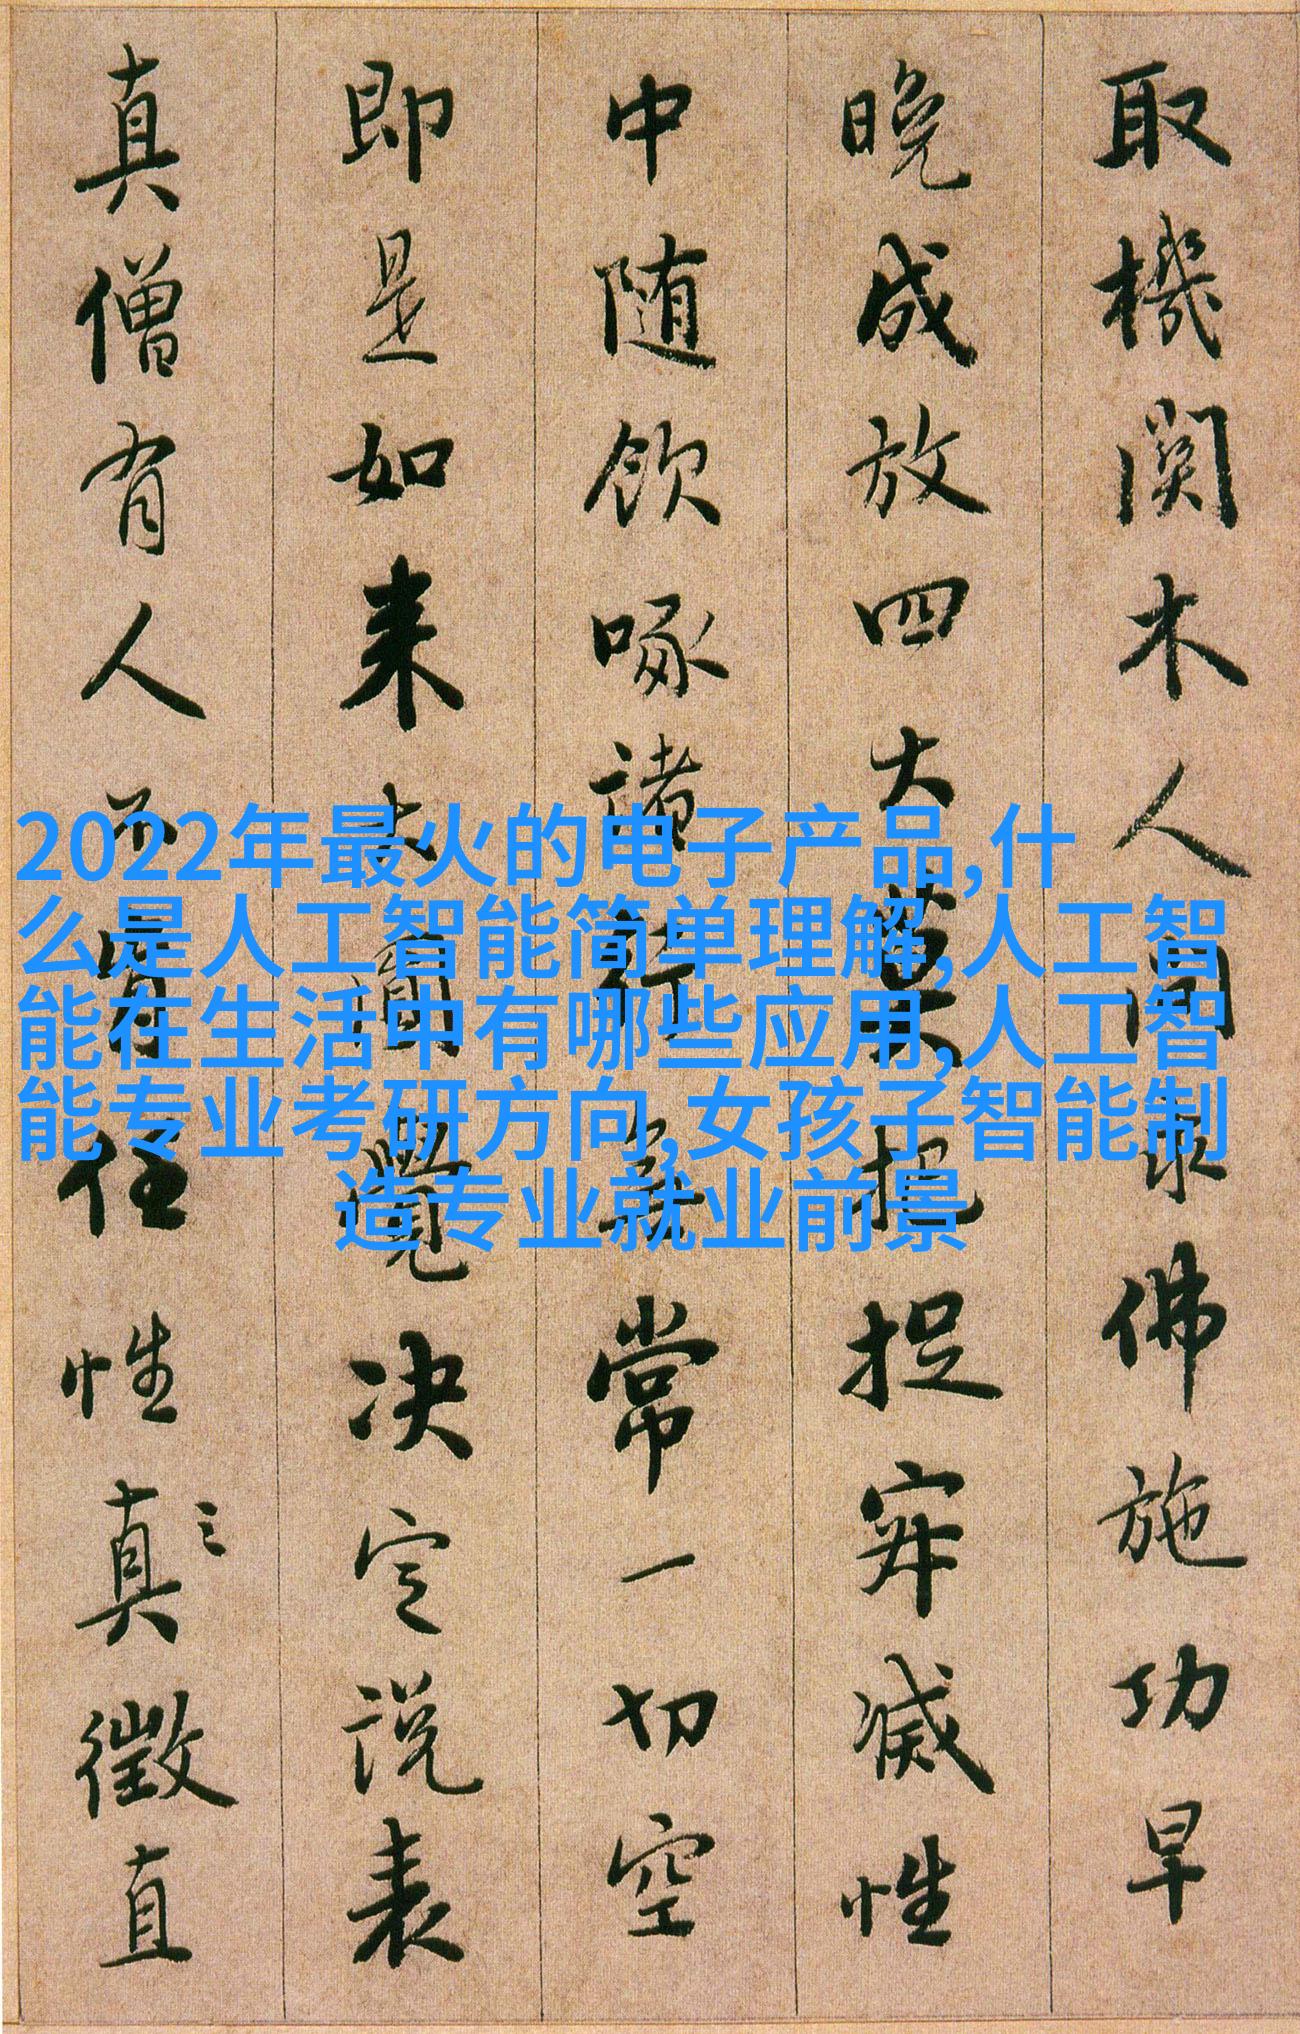 取機関木人問求佛施功早
晚成放四大莫把捉寂滅性
中随飲啄諸行無常一切空
即是如来大圓覺决定說表
真僧有人不肯任性真徵直
2022年最火的电子产品,什
么是人工智能简单理解,人工智
能在生活中有哪些应用,人工智
能专业考研方向,女孩子智能制
造专业就业前景